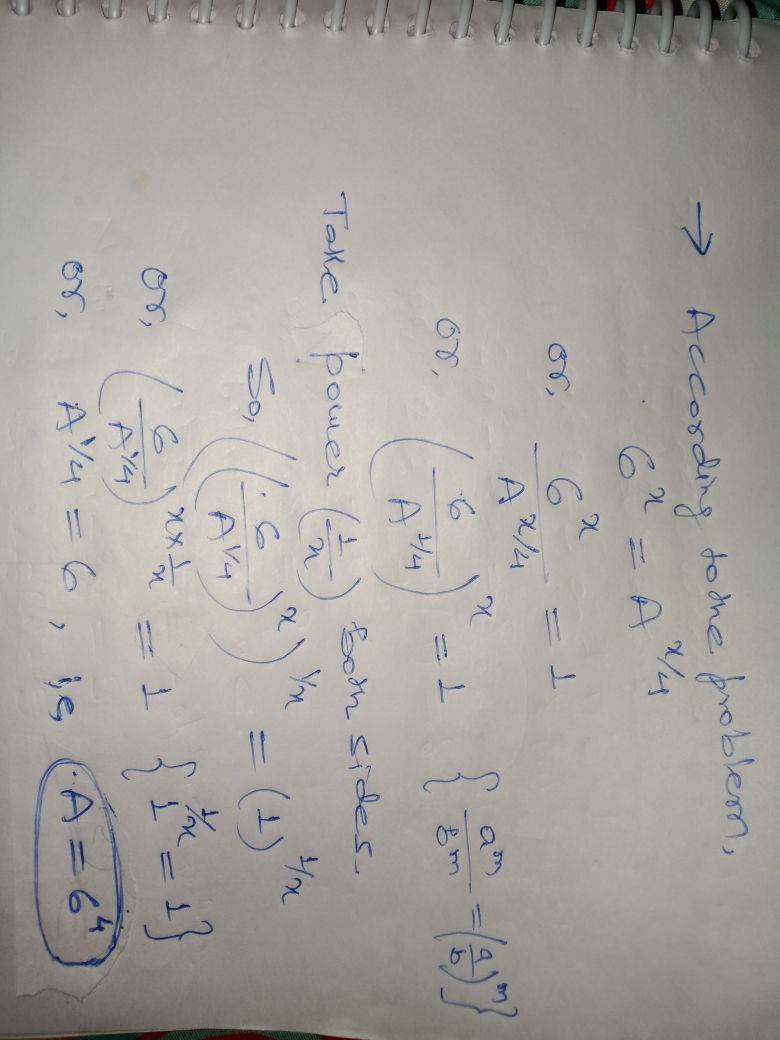 → According to the problem,
6^x = A^x/4
or, 6^x / A^x/4 = 1
or, (6 / A^1/4)^x = 1 {a^m / b^m = (a/b)^m}
Take power (1/x) both sides.
So, ((6 / A^1/4)^x)^1/x = (1)^1/x
or, (6 / A^1/4)^x×1/x = 1 {1^1/x = 1}
or, A^1/4 = 6, i.e, A = 6^4